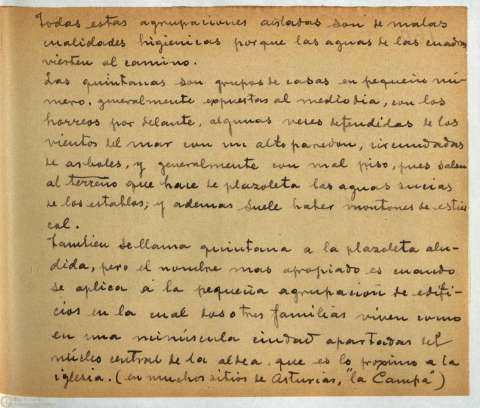 Todas estas agrupaciones aisladas son de malas
cualidades higienicas porque las aguas de las cuadras
vierten al camino.
Las quintanas son grupos de casas en pequeño nú-
mero. generalmente expuestas al mediodia, con los
horreos por delante, algunas veces defendidas de los
vientos del mar con un alto paredon, circundadas
de arboles, y generalmente con mal piso, pues salen
al terreno que hace de plazoleta las aguas sucias
de los establos; y ademas suele haber montones de estier
col.
Tambien se llama quintana a la plazoleta alu-
dida, pero el nombre mas apropiado es cuando
se aplica á la pequeña agrupacion de edifi-
cios en la cual dos o tres familias viven como
en una minúscula ciudad apartadas del
núcleo central de la aldea, que es lo proximo a la
iglesia. (en muchos sitios de Asturias, "la Campa")